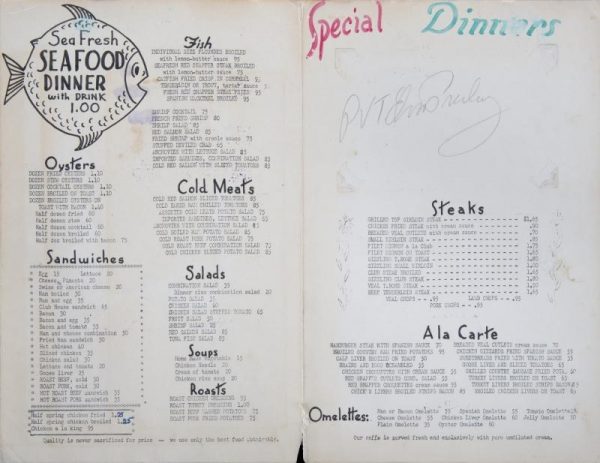 Sea Fresh
SEAFOOD
DINNER
with DRINK
1.00
Oysters
DOZEN FRIED OYSTERS 1.10
DOZEN STEW OYSTERS 1.10
DOZEN COCKTAIL OYSTERS 1.10
DOZEN BROILED ON TOAST 1.10
DOZEN BROILED OYSTERS ON
TOAST WITH BACON 1.40
Half dozen fried 60
Half dozen stew 60
Half dozen cocktail 60
Half dozen broiled 60
Half doz broiled with bacon 75
Sandwiches
Egg 15 Lettuce 20
Cheese, Pimento 20
Swiss or American cheese 20
Ham boiled 30
Ham and egg 35
Club House sandwich 65
Bacon 30
Bacon and egg 35
Bacon and tomato 35
Ham and cheese combination 30
Fried ham sandwich 30
Hot chicken 40
Sliced chicken 35
Chicken salad 30
Lettuce and tomato 20
Goose liver 30
ROAST BEEF, cold 30
ROAST PORK, cold 30
HOT ROAST BEEF sandwich 35
HOT ROAST PORK sandwich 35
Half spring chicken fried 1.25
Half spring chicken broiled 1.25
Chicken a la king 95
Fish
INDIVIDUAL SIZE FLOUNDER BROILED
with lemon-butter sauce 95
SEAFRESH RED SNAPPER STEAK BROILED
with lemon-butter sauce 75
CATFISH FRIED CRISP IN CORNMEAL 95
TENDERLOIN OF TROUT, tartar sauce
FRESH RED SNAPPER STEAK FRIED 95
SPANISH MACKEREL BROILED 95
SHRIMP COCKTAIL 75
FRENCH FRIED SHRIMP 80
SHRIMP SALAD 85
RED SALMON SALAD 85
FRIED SHRIMP with creole sauce 75
STUFFED DEVILED CRAB 65
ANCHOVIES WITH LETTUCE SALAD 85
IMPORTED SARDINES, COMBINATION SALAD 85
COLD RED SALMON WITH SLICED TOMATOES 85
Cold Meats
COLD RED SALMON SLICED TOMATOES 85
COLD BAKED HAM CHILLED TOMATOES 85
ASSORTED COLD MEATS POTATO SALAD 75
IMPORTED SARDINES, LETTUCE SALAD 85
ANCHOVIES WITH COMBINATION SALAD 85
COLD BOILED HAM POTATO SALAD 85
COLD ROAST PORK POTATO SALAD 75
COLD ROAST BEEF COMBINATION SALAD 75
COLD CHICKEN SLICED POTATO SALAD 85
Salads
COMBINATION SALAD 35
Dinner size combination salad 20
POTATO SALAD 35
CHICKEN SALAD 85
CHICKEN SALAD STUFFED TOMATO 65
FRUIT SALAD 50
SHRIMP SALAD 85
RED SALMON SALAD 85
TUNA FISH SALAD 85
Soups
Home Made Vegetable 15
Chicken Noodle 20
Cream of tomato 20
Chicken rice soup 20
Roasts
ROAST CHICKEN DRESSING
ROAST TURKEY DRESSING 1.00
ROAST BEEF MASHED POTATOES 75
ROAST PORK FRIED POTATOES 75
Quality is never sacrificed for price -- we use only the best food obtainable.
Special Dinners
PVT Elvis Presley
Steaks
BROILED TOP SIRLOIN STEAK $1.85
CHICKEN FRIED STEAK with cream sauce
BREADED VEAL CUTLETS with cream sauce 70
SMALL SIRLOIN STEAK
FILET MIGNON A LA CARTE
FILET MIGNON ON TOAST
SIZZLING T.BONE STEAK
SIZZLING SMALL SIRLOIN
CLUB STEAK BROILED
SIZZLING CLUB STEAK
VEAL T.BONE STEAK
BEEF TENDERLOIN STEAK
VEAL CHOPS - - .95 LAMB CHOPS - - .95
PORK CHOPS - - .95
A la Carte
HAMBURGER STEAK WITH SPANISH SAUCE 70 BREADED VEAL CUTLETS cream sauce 70
BROILED COUNTRY HAM FRIED POTATOES 95 CHICKEN GIZZARDS FRIED SPANISH SAUCE
CALF LIVER BROILED ON TOAST 70 DINNER SAUSAGE WITH FRENCH FRIES 65
Omelettes:
Ham or Bacon Omelette Spanish Omelette 55 Tomato Omelette
Cheese Omelette 55 Chicken Liver Omelette 60 Jelly Omelette 50
Plain Omelette 35 Oyster Omelette 60
Our coffe is served fresh and exclusively with pure undiluted cream.